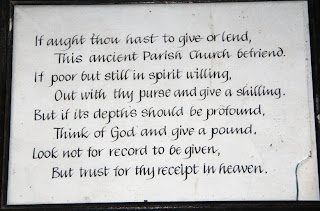 If aught thou hast to give or lend,
This ancient Parish Church befriend.
If poor but still in spirit willing,
Out with thy purse and give a shilling.
But if its depths should be profound,
Think of God and give a pound.
Look not for record to be given,
But trust for thy receipt In heaven.